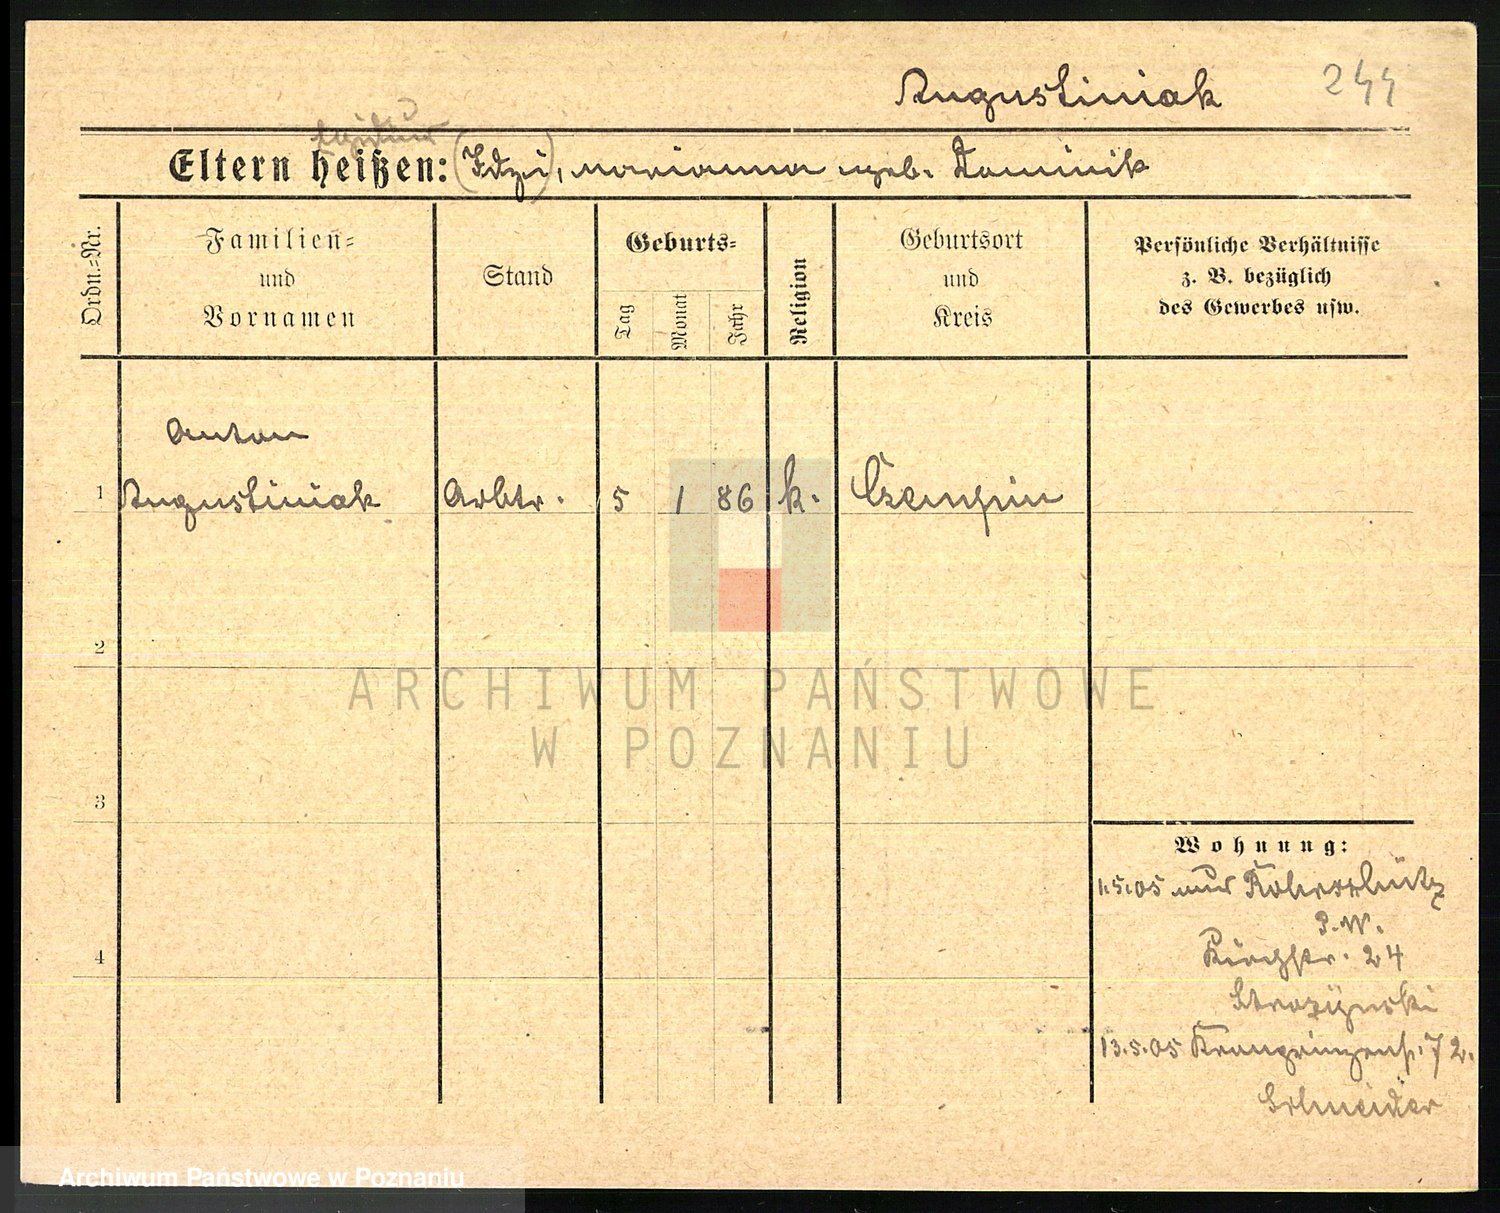 Augustiniak 244
Egidius
Eltern heißen: (Idzi), Marianna geb. Dominik
Ordn.=Nr.
Familien=
und
Vornamen
Stand
Geburts=
Tag
Monat
Jahr
Religion
Geburtsort
und
Kreis
Persönliche Verhältnisse
z. B. bezüglich
des Gewerbes usw.
Anton
1 Augustiniak Arbtr. 5 1 86 k. Czempin
2
ARCHIWUM PAŃSTWOWE
W POZNANIU
3
Wohnung:
1.5.05
P.W.
4 Kirchstr. 24
Strozynski
13.5.05 Kronprinzenstr. 72.
Schneider
Archiwum Państwowe w Poznaniu